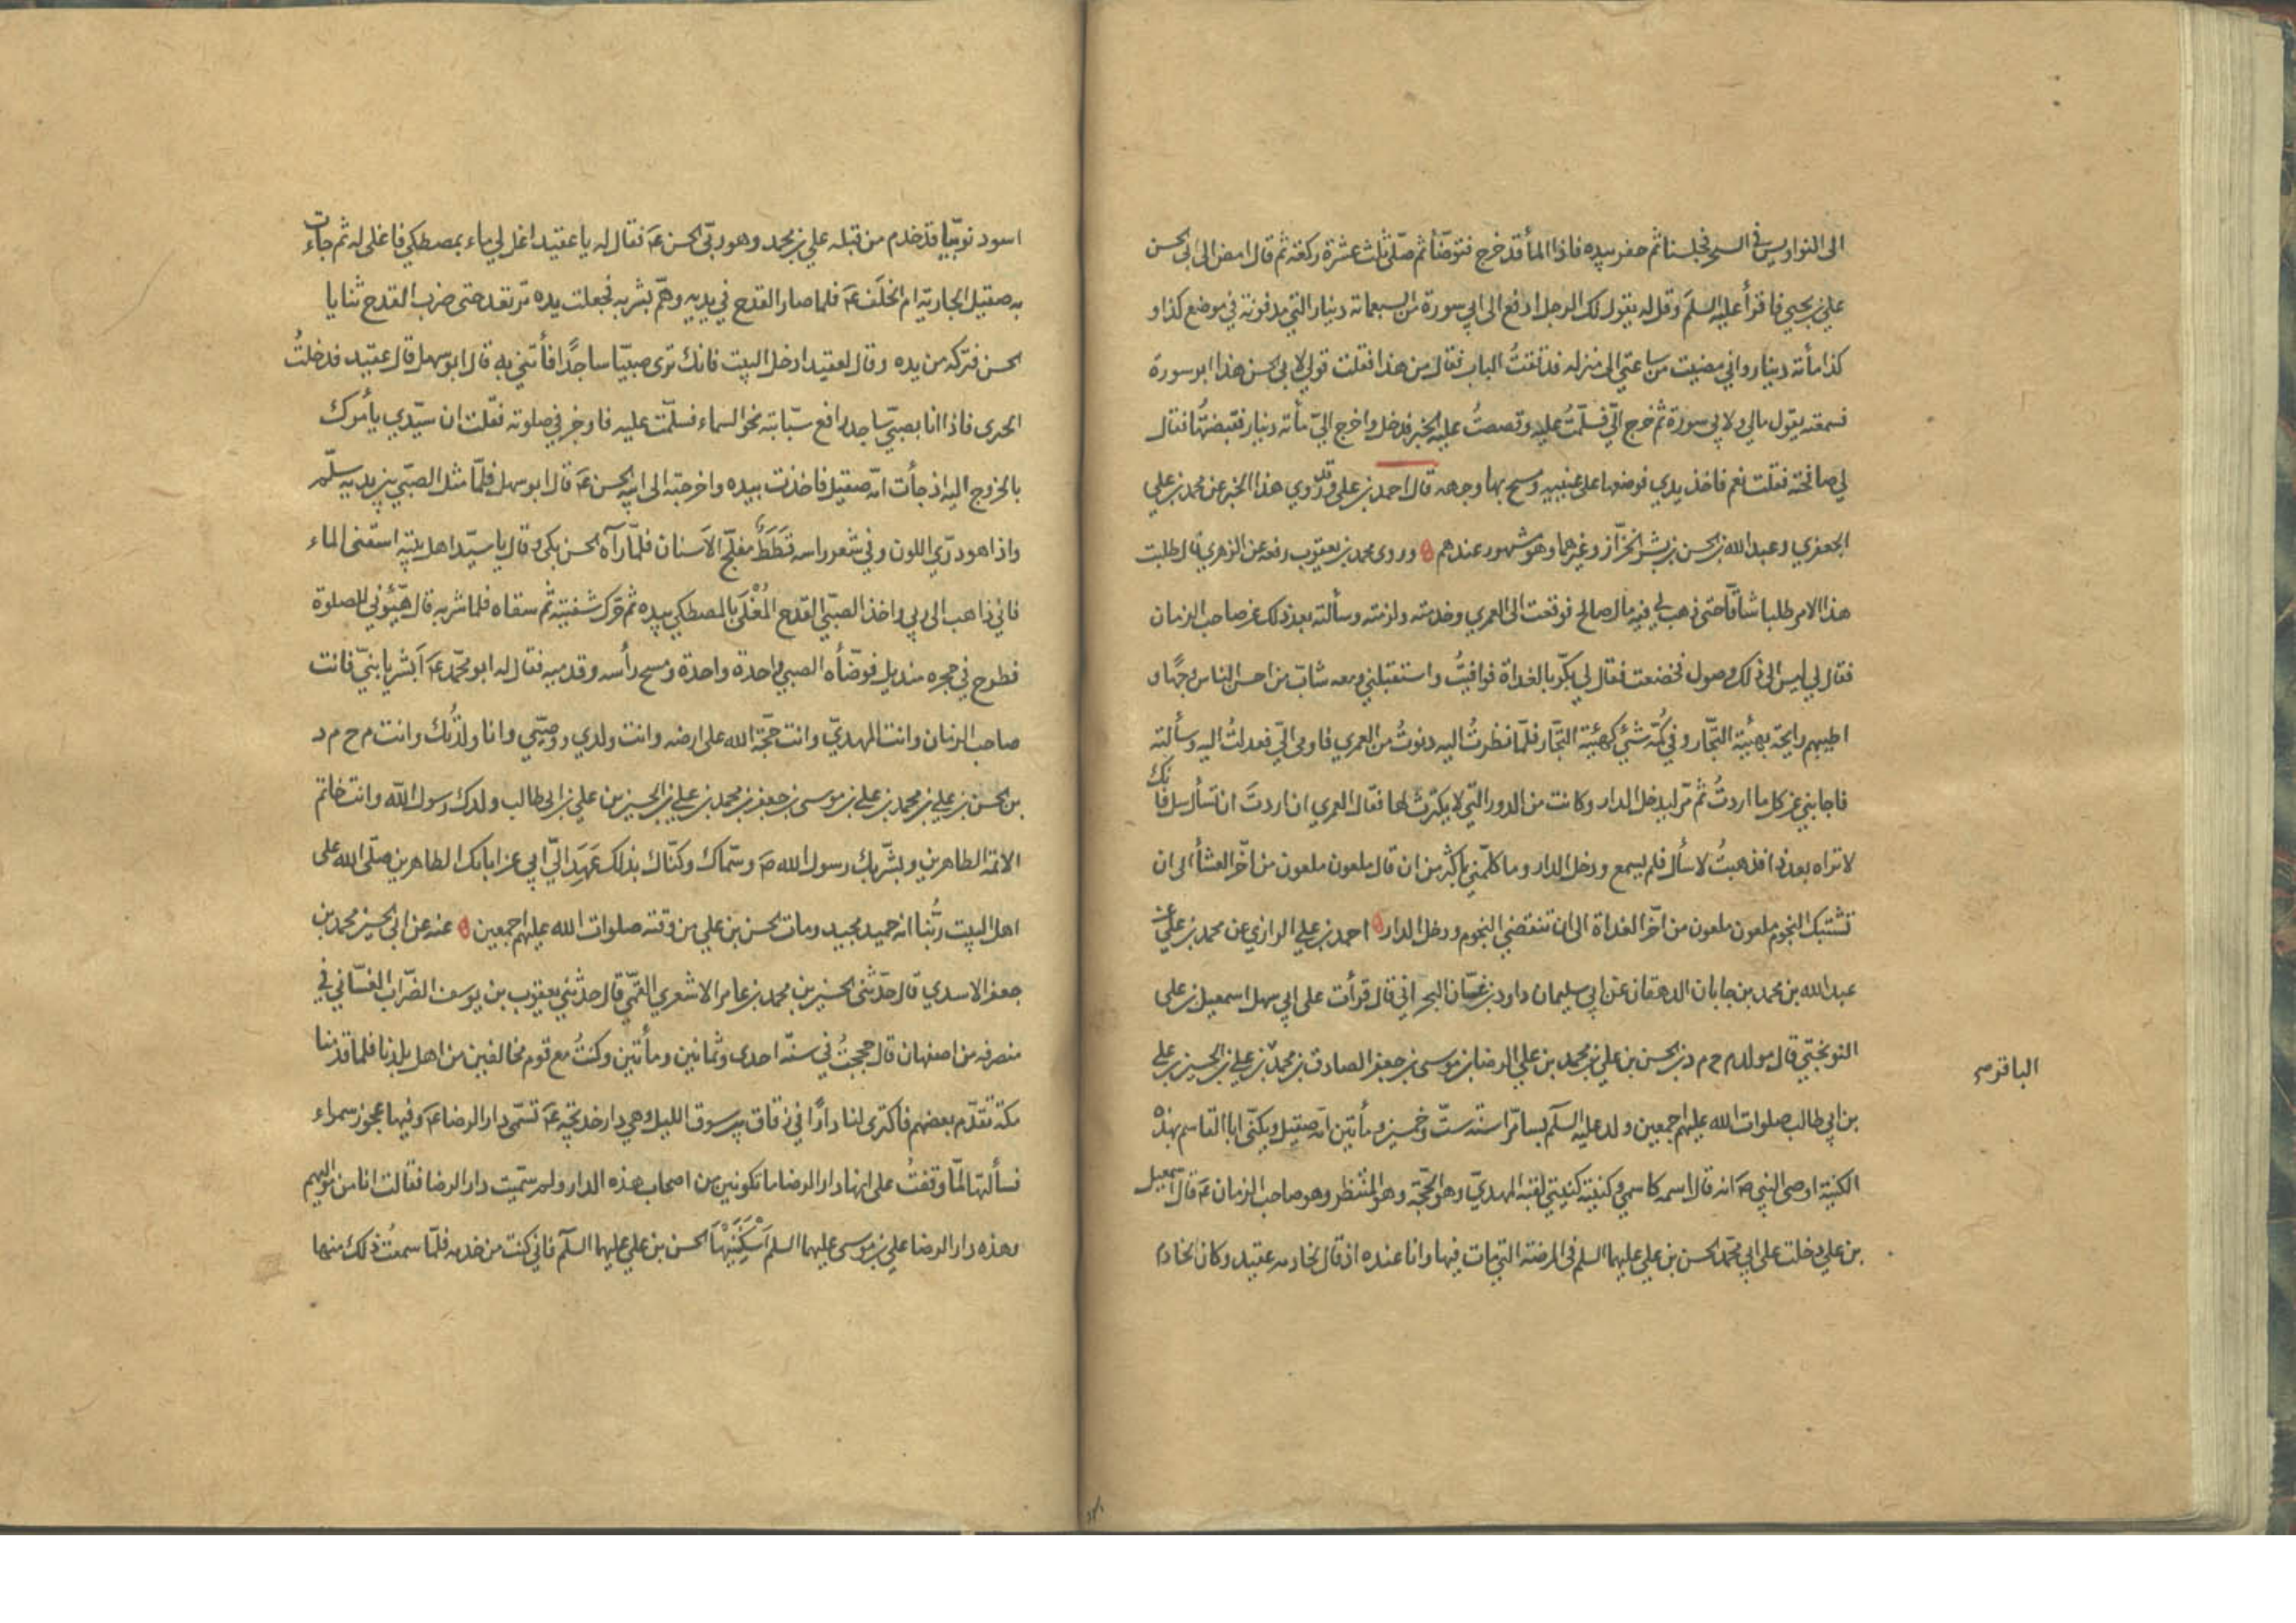 الى النواويس في السحر فجلسنا ثم حفر بيده فاذا الماء قد خرج فتوضأ ثم صلى ثلث عشرة ركعة ثم قال امض الى ابي الحسن
علي بن يحيى فاقرأ عليه السلم وقل له يقول لك الرجل ادفع الى ابي سورة من السبعمائة دينار التي مدفونة في موضع كذا و
كذا مأته دينار واني مضيت من ساعتي الى منزله فدققت الباب فقال من هذا فقلت قولي لابي الحسن هذا ابو سورة
فسمعته يقول مالي ولابي سورة ثم خرج الي فسلمت عليه وقصصت عليه الخبر فدخل واخرج الي مأته دينار فقبضتها فقال
لي صافحته فقلت نعم فاخذ يدي فوضعها على عينيه ومسح بها وجهه قال احمد بن علي وقد روي هذا الخبر عن محمد بن علي
الجعفري وعبد الله بن الحسن بن بشر الخزاز وغيرهما وهو مشهور عندهم وروى محمد بن يعقوب رفعه عن الزهري قال طلبت
هذا الامر طلبا شاقا حتى ذهب لي فيه مال صالح فوقعت الى العمري وخدمته ولزمته وسألته بعد ذلك عن صاحب الزمان
فقال لي ليس الى ذلك وصول فخضعت فقال لي بكر بالغداة فوافيت واستقبلني ومعه شاب من احسن الناس وجها و
اطيبهم رايحة بهيئة التجار وفي كمه شئ كهيئة التجار فلما نظرت اليه دنوت من العمري فاومى الي فعدلت اليه وسألته
فاجابني عن كل ما اردت ثم مر ليدخل الدار وكانت من الدور التي لا يكترث لها فقال العمري ان اردت ان تسأل سل فانك
لا تراه بعد ذا فذهبت لاسأل فلم يسمع ودخل الدار وما كلمني باكثر من ان قال ملعون ملعون من اخر العشأ الى ان
تشتبك النجوم ملعون ملعون من اخر الغداة الى ان تنقضي النجوم ودخل الدار احمد بن علي الرازي عن محمد بن علي عن
عبد الله بن محمد بن جابان الدهقان عن ابي سليمان داود بن غسان البحراني قال قرأت على ابي سهل اسمعيل بن علي
النوبختي قال مولد م ح م د بن الحسن بن علي بن محمد بن علي الرضا بن موسى بن جعفر الصادق بن محمد بن علي بن الحسين بن علي
الباقر
بن ابي طالب صلوات الله عليهم اجمعين ولد عليه السلم بسامرا سنة ست وخمسين ومأتين امه صقيل ويكنى ابا القاسم بهذه
الكنية اوصى النبي ص انه قال اسمه كاسمي وكنيته كنيتي لقبه المهدي وهو الحجة وهو المنتظر وهو صاحب الزمان ع قال اسمعيل
بن علي دخلت على ابي محمد الحسن بن علي عليهما السلم في المرضة التي مات فيها وانا عنده اذ قال لخادمه عقيد وكان الخادم
اسود نوبيا قد خدم من قبله علي بن محمد وهو ربى الحسن ع فقال له يا عقيد اغل لي ماء بمصطكي فاغلى له ثم جاءت
به صقيل الجارية ام الخلف ع فلما صار القدح في يديه وهم بشربه فجعلت يده ترتعد حتى ضرب القدح ثنايا
الحسن فتركه من يده وقال لعقيد ادخل البيت فانك ترى صبيا ساجدا فأتني به قال ابو سهل قال عقيد فدخلت
اتحرى فاذا انا بصبي ساجد رافع سبابته نحو السماء فسلمت عليه فاوجز في صلوته فقلت ان سيدي يأمرك
بالخروج اليه اذ جأت امه صقيل فاخذت بيده واخرجته الى ابيه الحسن ع قال ابو سهل فلما مثل الصبي بين يديه سلم
واذا هو دري اللون وفي شعر راسه قطط مفلج الاسنان فلما رآه الحسن بكى وقال يا سيد اهل بيته اسقني الماء
فاني ذاهب الى ربي واخذ الصبي القدح المغلى بالمصطكي بيده ثم حرك شفتيه ثم سقاه فلما شربه قال هيئوني للصلوة
فطرح في حجره منديل فوضأه الصبي واحدة واحدة ومسح رأسه وقدميه فقال له ابو محمد ع ابشر يا بني فانت
صاحب الزمان وانت المهدي وانت حجة الله على ارضه وانت ولدي ووصيي وانا ولدتك وانت م ح م د
بن الحسن بن علي بن محمد بن علي بن موسى بن جعفر بن محمد بن علي بن الحسين بن علي بن ابي طالب ولدك رسول الله وانت خاتم
الائمة الطاهرين وبشر بك رسول الله ص وسماك وكناك بذلك عهد الي ابي عن ابائك الطاهرين صلى الله على
اهل البيت ربنا انه حميد مجيد ومات الحسن بن علي من وقته صلوات الله عليهم اجمعين عنه عن ابي الحسين محمد بن
جعفر الاسدي قال حدثني الحسين بن محمد بن عامر الاشعري القمي قال حدثني يعقوب بن يوسف الضراب الغساني في
منصرفه من اصفهان قال حججت في سنة احدى وثمانين ومأتين وكنت مع قوم مخالفين من اهل بلدنا فلما قدمنا
مكة تقدم بعضهم فاكترى لنا دارا في زقاق بين سوق الليل وهي دار خديجة ع تسمى دار الرضا ع وفيها عجوز سمراء
فسألتها لما وقفت على انها دار الرضا ما تكونين من اصحاب هذه الدار ولم سميت دار الرضا فقالت انا من مواليهم
وهذه دار الرضا علي بن موسى عليهما السلم اسكنيها الحسن بن علي عليهما السلم فاني كنت من خدمه فلما سمعت ذلك منها